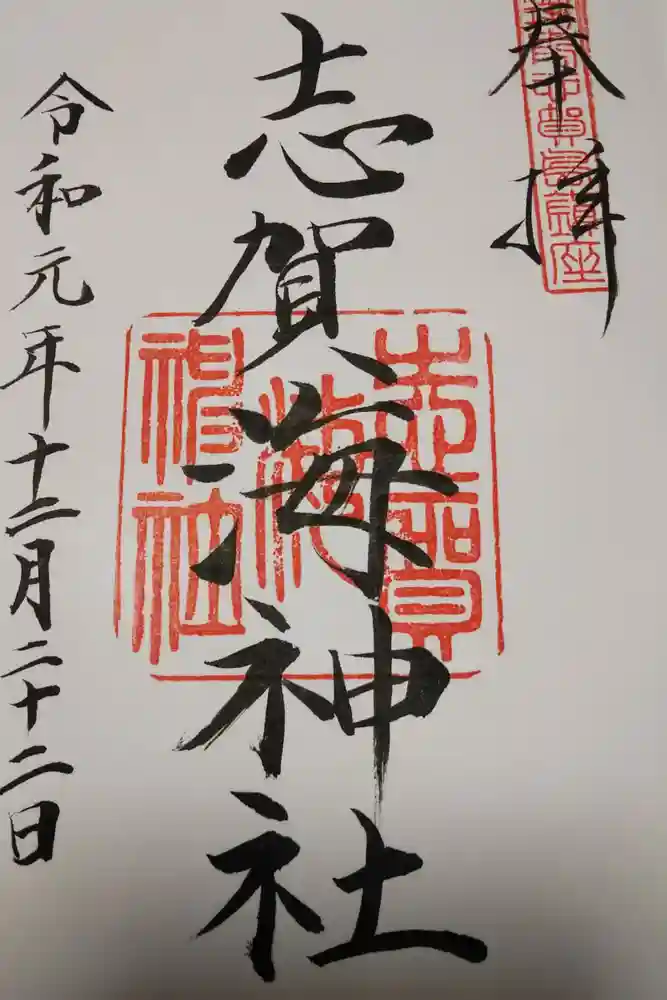 奉拝
志賀島鎮座
志賀海神社
志賀
海
神社
令和元年十二月二十二日